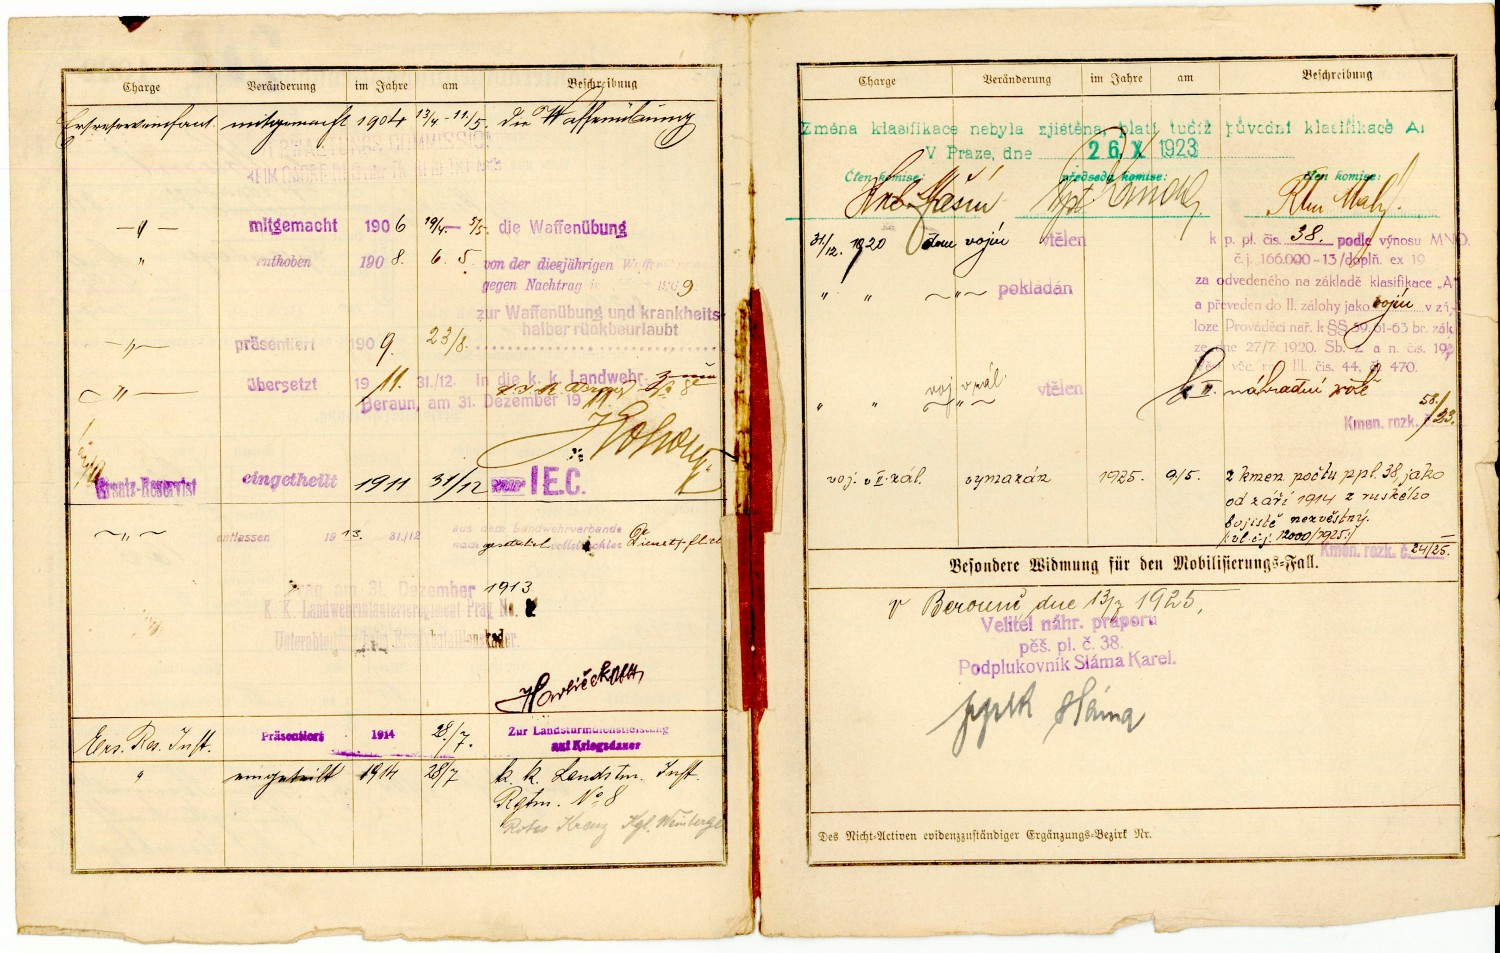 Charge Veränderung im Jahre am Beschreibung
Ersatzreserveinfant. mitgemacht 1904 13/4 - 11/5. die Waffenübung
— " — mitgemacht 1906 19/4 — 5/5. die Waffenübung
" enthoben 1908. 6. 5. von der diesjährigen
gegen Nachtrag 1909
zur Waffenübung und krankheits-
halber rückbeurlaubt
— " — präsentiert 1909. 23/8.
— " — übersetzt 1911. 31/12. In die k. k. Landwehr.
Beraun, am 31. Dezember 1911
Ersatz-Reservist eingetheilt 1911 31/12 I E.C.
— " — entlassen 1913. 31./12 aus dem Landwehrverbande
nach gesetzlich vollstreckter Dienstpflicht
Prag am 31. Dezember 1913
K. K. Landwehrinfanterieregiment Prag No. 8
Havlíček
Ers. Res. Inft. Präsentiert 1914 28/7. Zur Landsturmdienstleistung
auf Kriegsdauer
" eingeteilt 1914 28/7 k. k. Landstm. Inft.
Rgtm. No 8
Rotes Kreuz Kgl. Weinberge
Charge Veränderung im Jahre am Beschreibung
Změna klasifikace nebyla zjištěna, platí tudíž původní klasifikace A
V Praze, dne 26. X 1923
Člen komise: předseda komise: člen komise:
31./12. 1920 vojín vtělen k p. pl. čís. 38. podle výnosu MNO.
č. j. 166.000-13/doplň. ex 19
za odvedeného na základě klasifikace „A"
" " — " — pokládán a převeden do II. zálohy jako vojín v zá-
loze Prováděcí nař. k §§ 59, 61-63 br. zák.
ze dne 27/7 1920. Sb. z. a n. čís. 19
čís. 44, 470.
" " voj. v zál. vtělen k II. náhradní rotě
Kmen. rozk. č. 58./23.
voj. v II. zál. vymazán 1925. 9/5. z kmen. počtu p.pl. 38, jako
od září 1914 z ruského
bojiště nezvěstný.
12000/1925
Kmen. rozk. č. 24/25.
Besondere Widmung für den Mobilisierungs-Fall.
v Berouně dne 13/7 1925.
Velitel náhr. praporu
pěš. pl. č. 38.
Podplukovník Sláma Karel.
pplk Sláma
Des Nicht-Activen evidenzzuständiger Ergänzungs-Bezirk Nr.